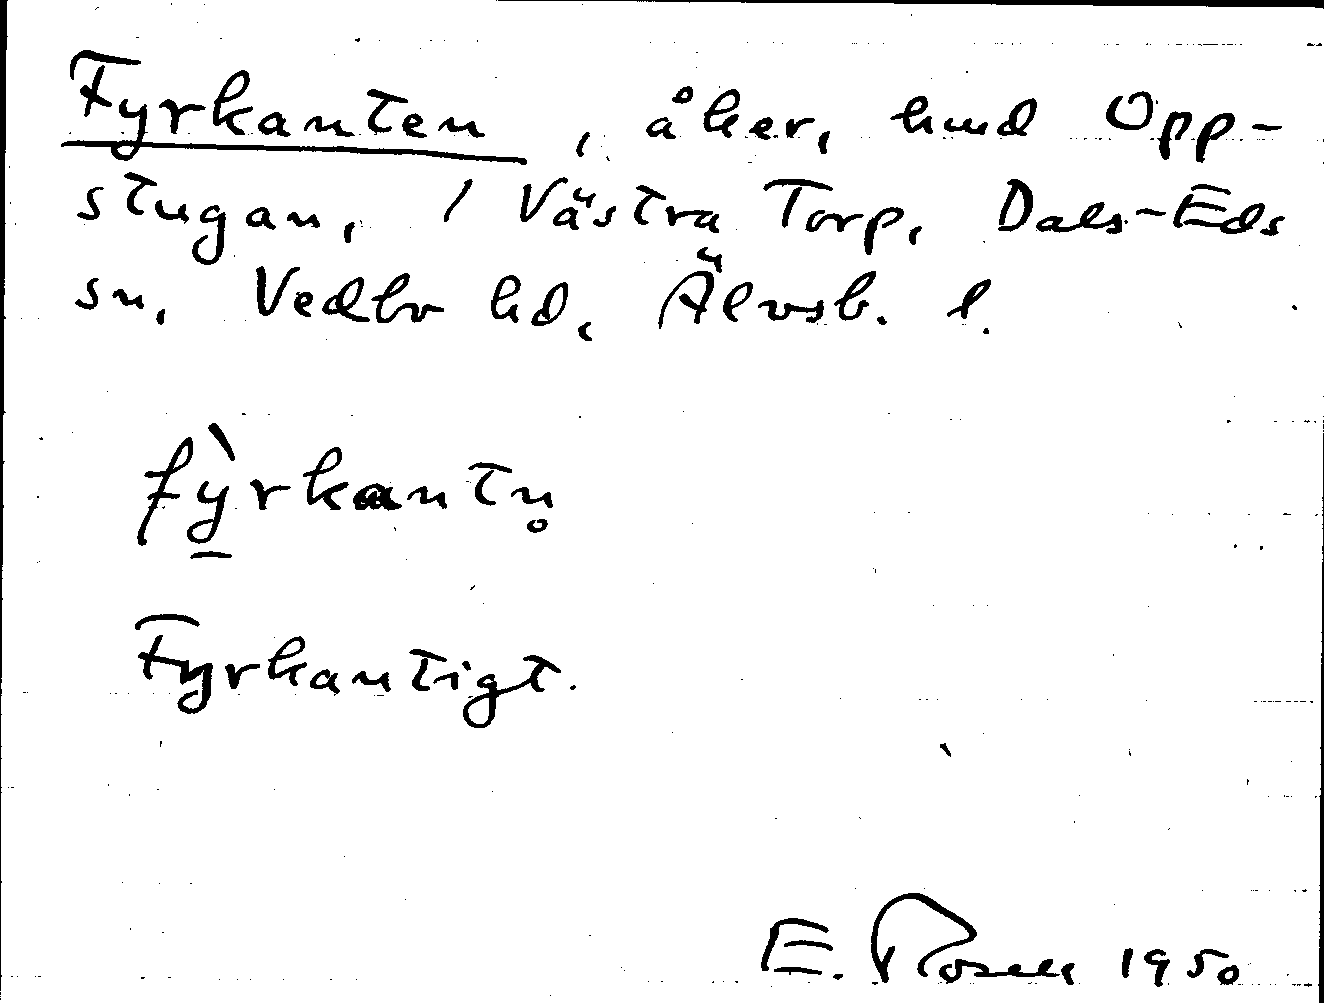 Fyrkanten, åker, hmd Opp-
stugan, / Västra Torp, Dals-Eds
sn, Vedbo hd, Älvsb. l.
fỳ̱rkantn̥
Fyrkantigt.
E. Rosell 1950